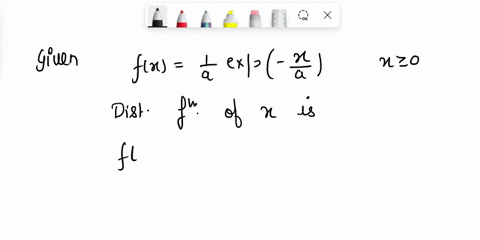 Given f(x) = 1/a exp(-x/a) x≥0
Dist. fⁿ. of x is
f(